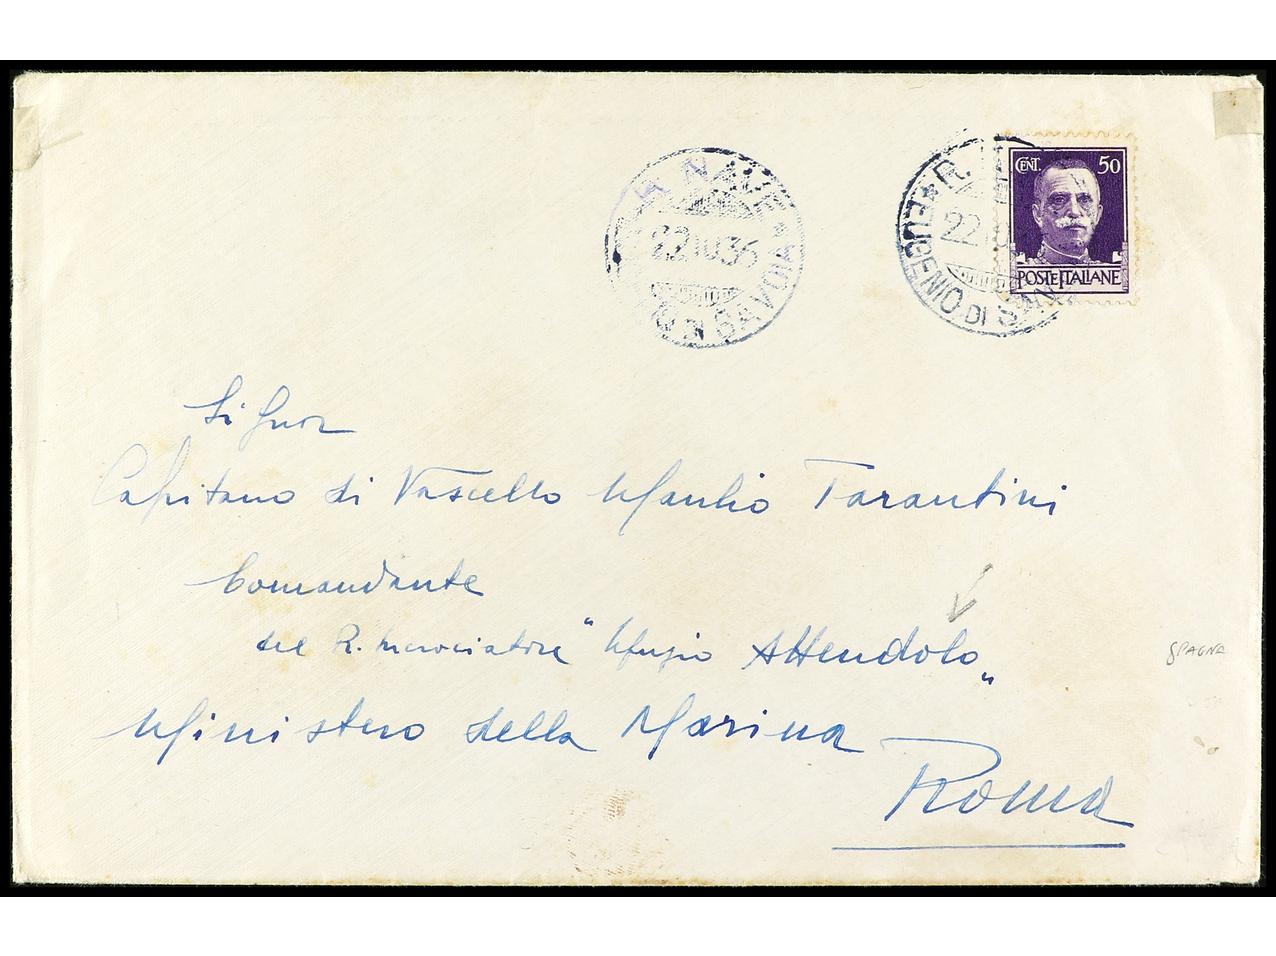 R. NAVE
22.10.36
DI SAVOIA
R.
22.10
EUGENIO DI SAV
CENT. 50
POSTE ITALIANE
Signor
Capitano di Vascello Manlio Tarantini
Comandante
del R. Incrociatore " Muzio Attendolo "
Ministero della Marina
Roma
SPAGNA